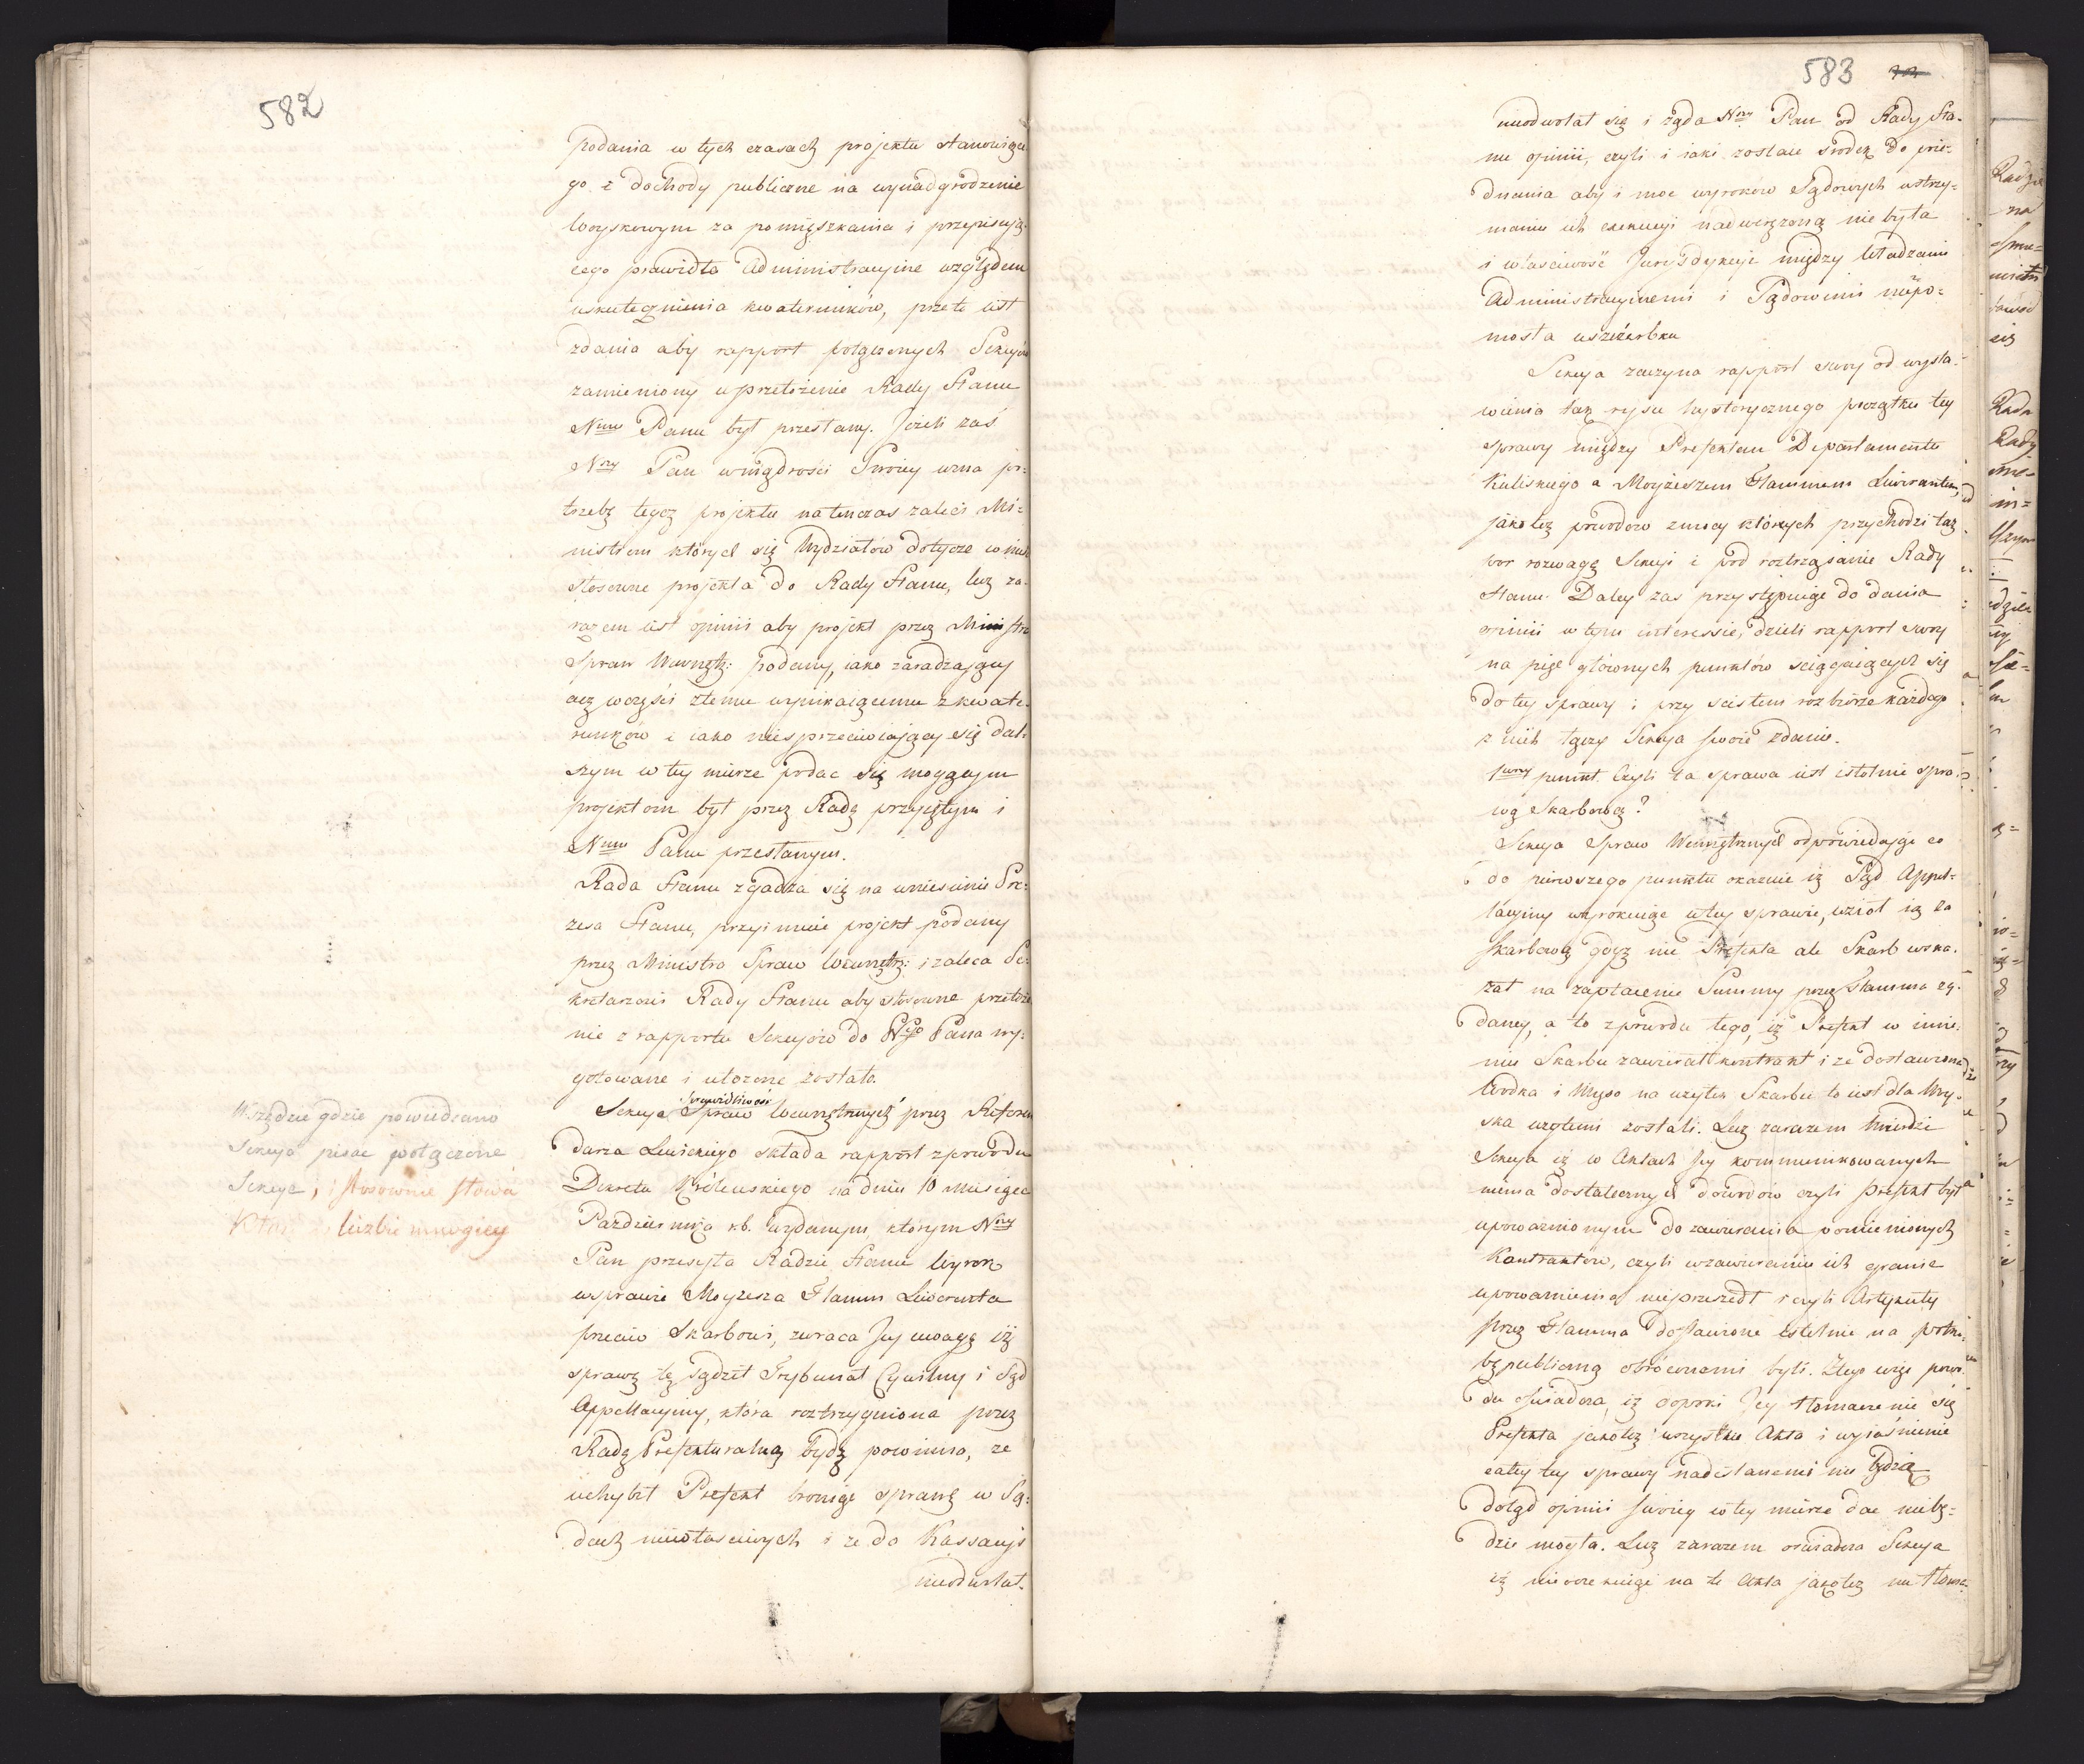 582
podania w tych czasach projektu stanowiące
go z dochody publiczne na wynadgrodzenie
woyskowym za pomięszkania i przepisuią-
cego prawidła Administracyine względem
uskutecznienia kwaterunków, przeto iest
zdania aby rapport połączonych Sekcyów
zamieniony w przełożenie Rady Stanu
Nmu Panu był przesłany. Jeżeli zaś
Nny Pan w mądrości Swoiey uzna po-
trzebę tegoż projektu natenczas zaleci Mi-
nistrom których się Wydziałów dotycze wnieść
stosowne projekta do Rady Stanu, lecz za-
razem iest opinii aby projekt przez Ministra
Spraw Wewnętr: podany, iako zaradzaiący
acz w części złemu wynikaiącemu z kwate-
runków i iako niesprzeciwiaiący się dal-
szym w tey mierze podać się mogącym
projektom był przez Radę przyiętym i
Nmu Panu przesłanym.
Rada Stanu zgadza się na wniesienie Pre-
zesa Stanu, przyimuie projekt podany
przez Ministra Spraw Wewnętrz: i zaleca Se-
kretarzowi Rady Stanu aby stosowne przełoże
nie z rapportu Sekcyiów do Ngo Pana wy-
gotowane i ułożone zostało.
Sprawidliwości
Sekcya Spraw Wewnętrznych przez Referen
darza Lewickiego składa rapport z powodu
Dekretu Królewskiego na dniu 10 Miesiąca
Pazdziernika r.b. wydanym, którym Nny
Pan przesyła Radzie Stanu Wyrok
w sprawie Moyżesza Flamm Liweranta
przeciw Skarbowi, zwraca Jey uwagę iż
sprawę tę sądził Trybunał Cywilny i Sąd
Appellacyiny, która roztrzygniona przez
Radę Prefekturalną bydź powinna, że
uchybił Prefekt broniąc sprawę w Są-
dach niewłaściwych i że do Kassacyi
nieodwołał.
Wszędzie gdzie powiedziano
Sekcya pisać połączone
Sekcye, i stosownie słowa
w liczbie mnogiey
583
nieodwołał się i żąda Nny Pan od Rady Sta-
nu opinii, czyli i iaki zostaie środek do poie-
dnania aby i moc wyroków Sądowych wstrzy-
maniu ich exekucyi nadwerężoną nie była
i właściwość Juryzdykcyi między Władzami
Administracyinemi i Sądowemi niepo-
niosła uszczerbku
Sekcya zaczyna rapport swoy od wysta-
wienia tak rysu hystorycznego początku tey
sprawy między Prefektem Departamentu
Kaliskiego a Moyżeszem Flammem Liwerantem,
jakoteż powodów z mocy których przychodzi taż
pod rozwagę Sekcyi i pod roztrząsanie Rady
Stanu. Daley zas przystępuiąc do dania
opinii w tym interessie, dzieli rapport swoy
na pięć głównych punktów sciągaiących się
do tey sprawy i przy scisłem rozbiorze każdego
z nich łączy Sekcya swoie zdanie.
1wszy punkt. Czyli ta sprawa iest istotnie spra-
wą Skarbową?
Sekcya Spraw Wewnętrznych odpowiedaiąc co
do pierwszego punktu okazuie iż Sąd Appel-
lacyiny wyrokuiąc w tey sprawie, wziął ią za
Skarbową gdyż nie Prefekta ale Skarb wska-
zał na zapłacenie Summy przez Flamma żą-
daney, a to z powodu tego, iż Prefekt w imie-
niu Skarbu zawierał kontrakt i że dostawiona
Wodka i Mięso na użytek Skarbu to iest dla Woy-
ska użytemi zostali. Lecz zarazem twierdzi
Sekcya iż w Aktach Jey kommunikowanych
niema dostatecznych dowodów czyli Prefekt był
upoważnionym do zawierania pomienionych
Kontraktów, czyli w zawieraniu ich granic
upoważnienia nieprzeszedł i czyli Artykuły
przez Flamma dostawione istotnie na potrze-
bę publiczną obróconemi byli. Z tego więc powo-
du oświadcza, iż dopoki Jey tłomaczenie się
Prefekta jakoteż wszystkie Akta i wyiaśnienie
całey tey sprawy nadesłanemi nie będzie
dotąd opinii swoiey w tey mierze dać niebę-
dzie mogła. Lecz zarazem oświadcza Sekcya
iż nieoczekuiąc na te Akta jakoteż na tłoma-